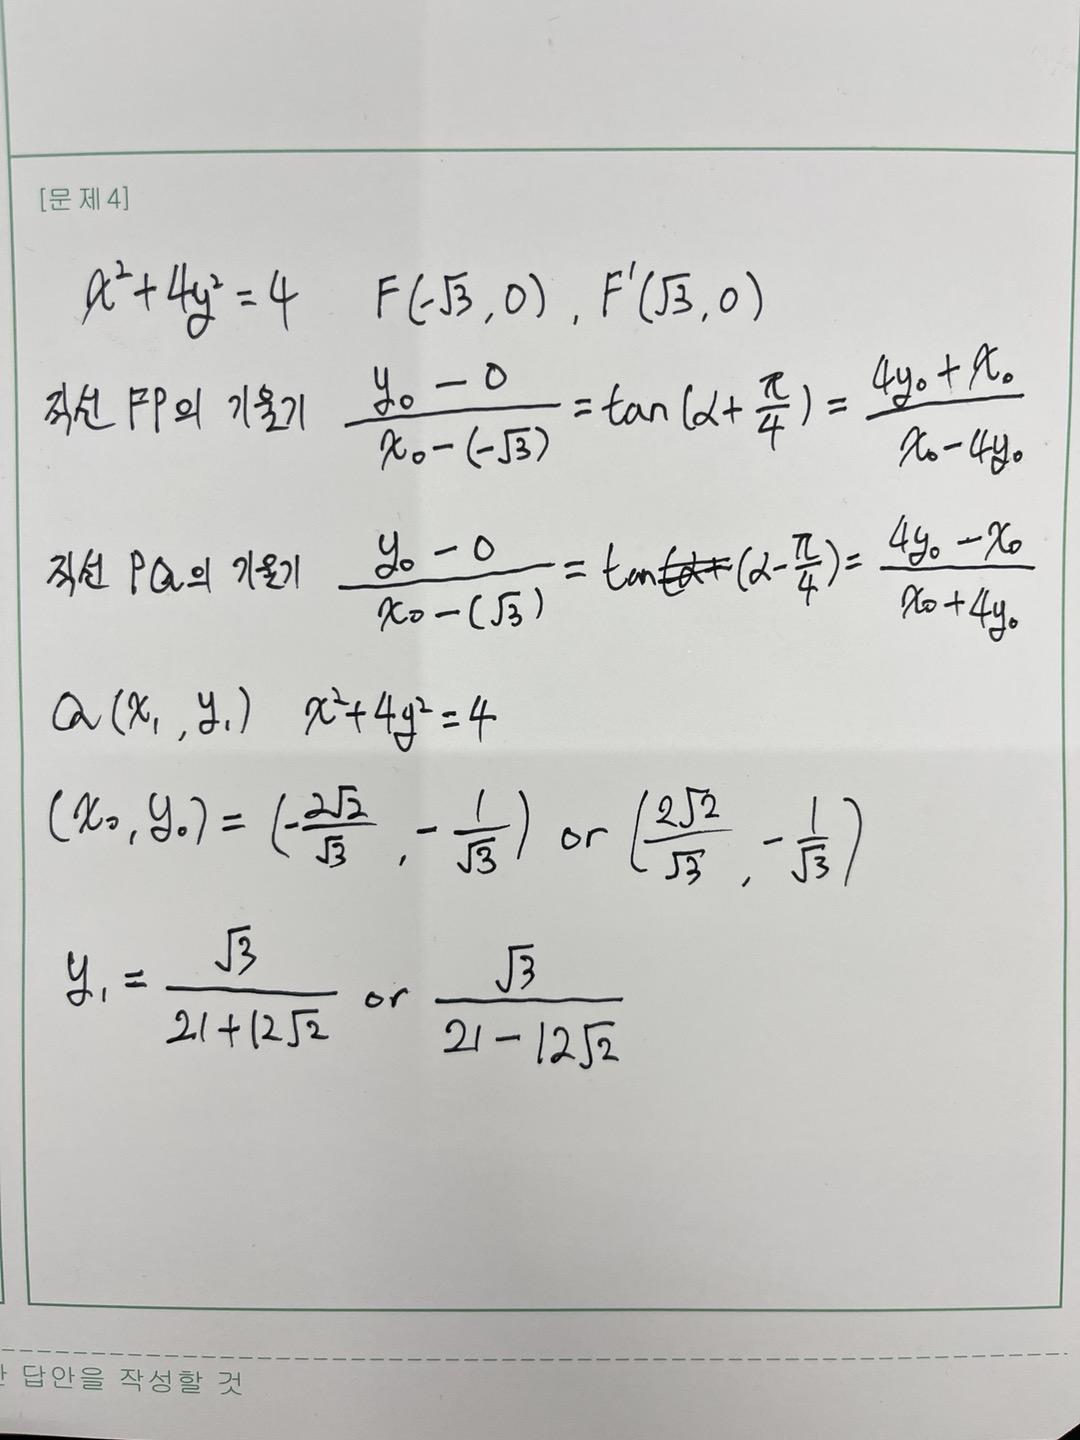 [문제 4]
x²+4y²=4 F(-√3, 0), F'(√3, 0)
직선 FP의 기울기 (y₀-0)/(x₀-(-√3)) = tan(α+π/4) = (4y₀+x₀)/(x₀-4y₀)
직선 PQ의 기울기 (y₀-0)/(x₀-(√3)) = tan(α-π/4) = (4y₀-x₀)/(x₀+4y₀)
Q(x₁, y₁) x²+4y²=4
(x₀, y₀) = (-2√2/√3, -1/√3) or (2√2/√3, -1/√3)
y₁ = √3/(21+12√2) or √3/(21-12√2)
답안을 작성할 것